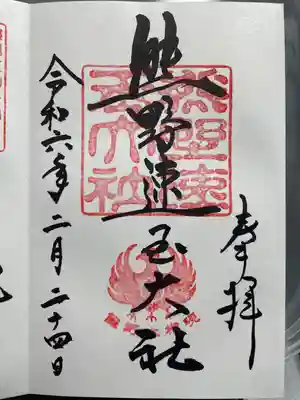 奉拝
熊野速玉大社
令和六年二月二十四日